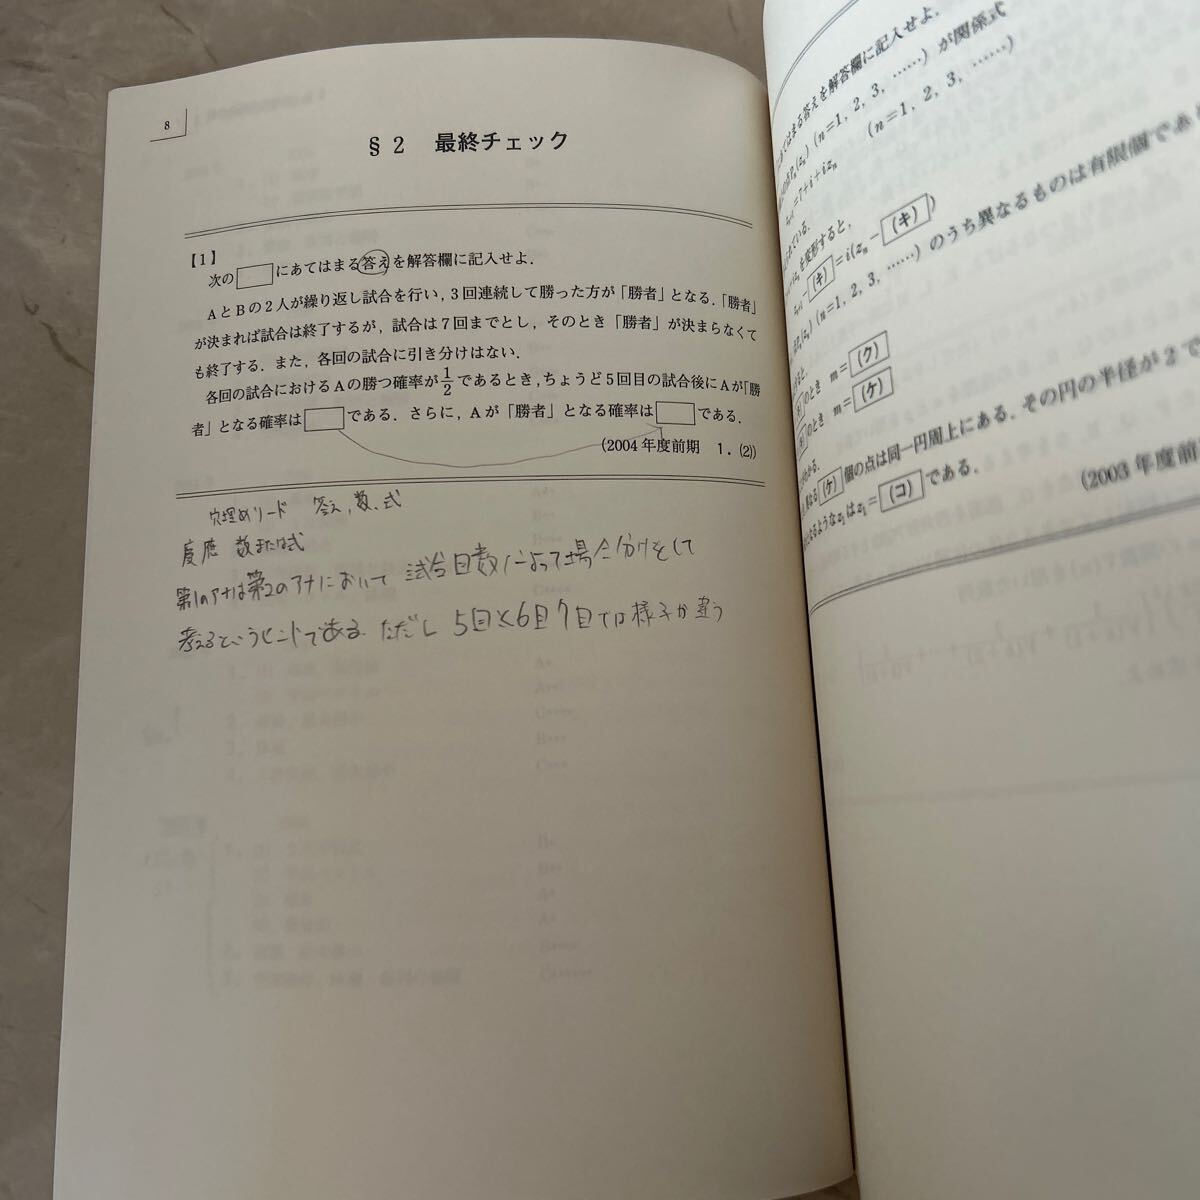 8
§2 最終チェック
【1】
次の□にあてはまる答えを解答欄に記入せよ．
AとBの2人が繰り返し試合を行い，3回連続して勝った方が「勝者」となる．「勝者」
が決まれば試合は終了するが，試合は7回までとし，そのとき「勝者」が決まらなくて
も終了する．また，各回の試合に引き分けはない．
各回の試合におけるAの勝つ確率が1/2であるとき，ちょうど5回目の試合後にAが「勝
者」となる確率は□である．さらに，Aが「勝者」となる確率は□である．
(2004年度前期 1．(2))
穴埋めリード 答え，数，式
慶應 数または式
第1のアナは第2のアナにおいて 試合回数によって場合分けをして
考えるというヒントである ただし 5回と6回7回では様子が違う
あてはまる答えを解答欄に記入せよ．
(n=1, 2, 3, ……) が関係式
=7+i+iz_n (n=1, 2, 3, ……)
ている．
を変形すると，
(キ) =i(z_n− (キ) )
(z_n) (n=1, 2, 3, ……) のうち異なるものは有限個であ
のとき m= (ク)
のとき m= (ケ)
かる．
(ケ) 個の点は同一円周上にある．その円の半径が2で
なるようなz_1はz_1= (コ) である．
(2003年度前